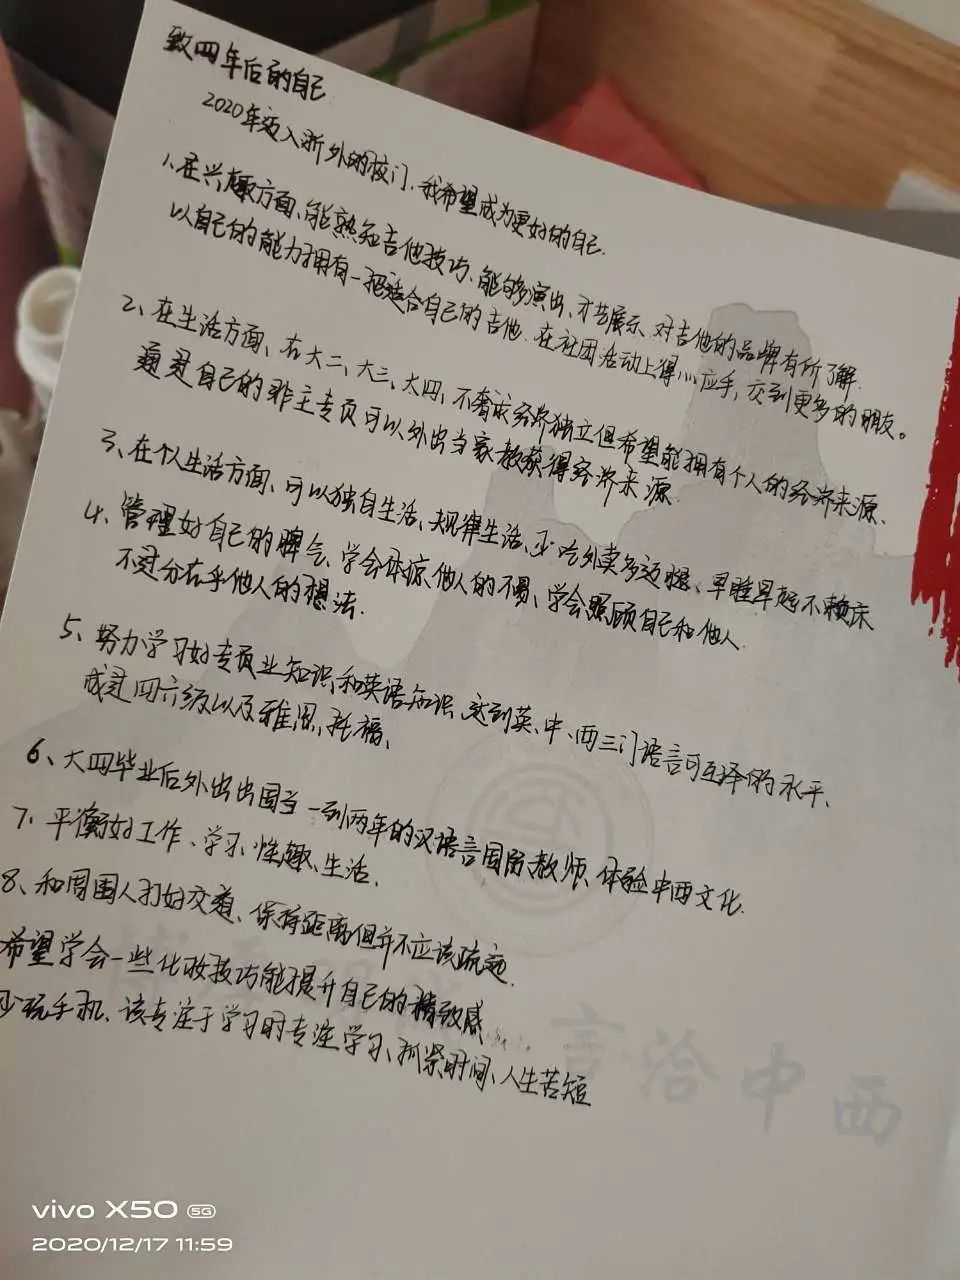 致四年后的自己
2020年迈入浙外的校门，我希望成为更好的自己.
1.在兴趣方面、能熟知吉他技巧、能够演出、才艺展示、对吉他的品牌有所了解.
以自己的能力拥有一把适合自己的吉他.在社团活动上得心应手，交到更多的朋友。
2、在生活方面、在大二、大三、大四，不奢求经济独立但希望能拥有个人的经济来源、
通过自己的非主专页可以外出当家教获得经济来源.
3、在个人生活方面、可以独自生活、规律生活、少吃外卖多运动、早睡早起不赖床
4、管理好自己的脾气、学会体谅他人的不易、学会照顾自己和他人、
不过分在乎他人的想法.
5、努力学习好专页业知识和英语知识、达到英、中、西三门语言可互译的水平、
成过四六级以及雅思、托福、
6、大四毕业后外出出国当一到两年的汉语言国际教师、体验中西文化.
7、平衡好工作、学习、性趣、生活.
8、和周围人打好交道、保持距离但并不应该疏远.
希望学会一些化妆技巧能提升自己的精致感
少玩手机、该专注于学习时专注学习、抓紧时间、人生苦短
言洽中西
vivo X50 5G
2020/12/17 11:59